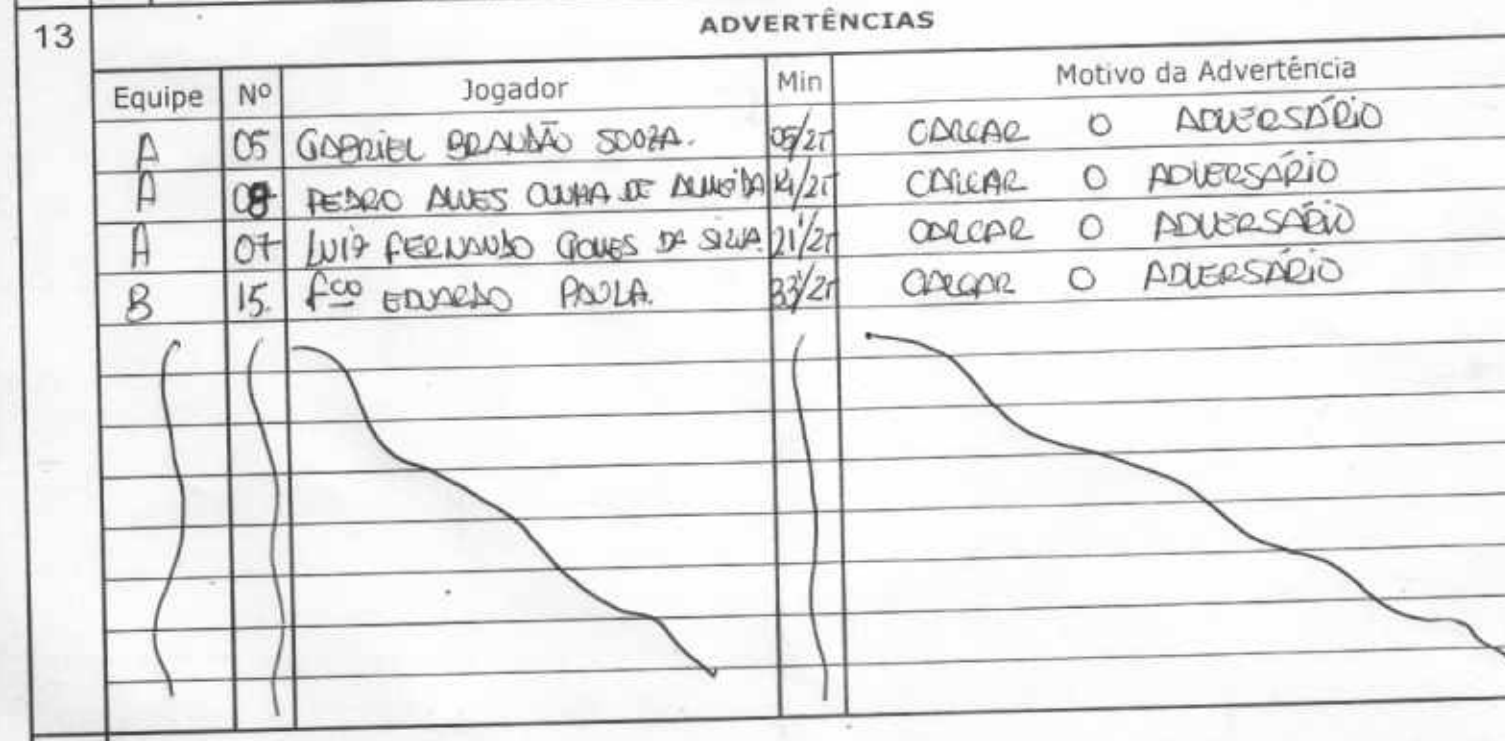 13 ADVERTÊNCIAS
Equipe Nº Jogador Min Motivo da Advertência
A 05 GABRIEL BRANDÃO SOUZA. 05/2T CALÇAR O ADVERSÁRIO
A 08 PEDRO ALVES CUNHA DE ALMEIDA 14/2T CALÇAR O ADVERSÁRIO
A 07 LUIZ FERNANDO GOMES DA SILVA 21'/2T CALÇAR O ADVERSÁRIO
B 15. Fco EDUARDO PAULA. 33'/2T CALÇAR O ADVERSÁRIO